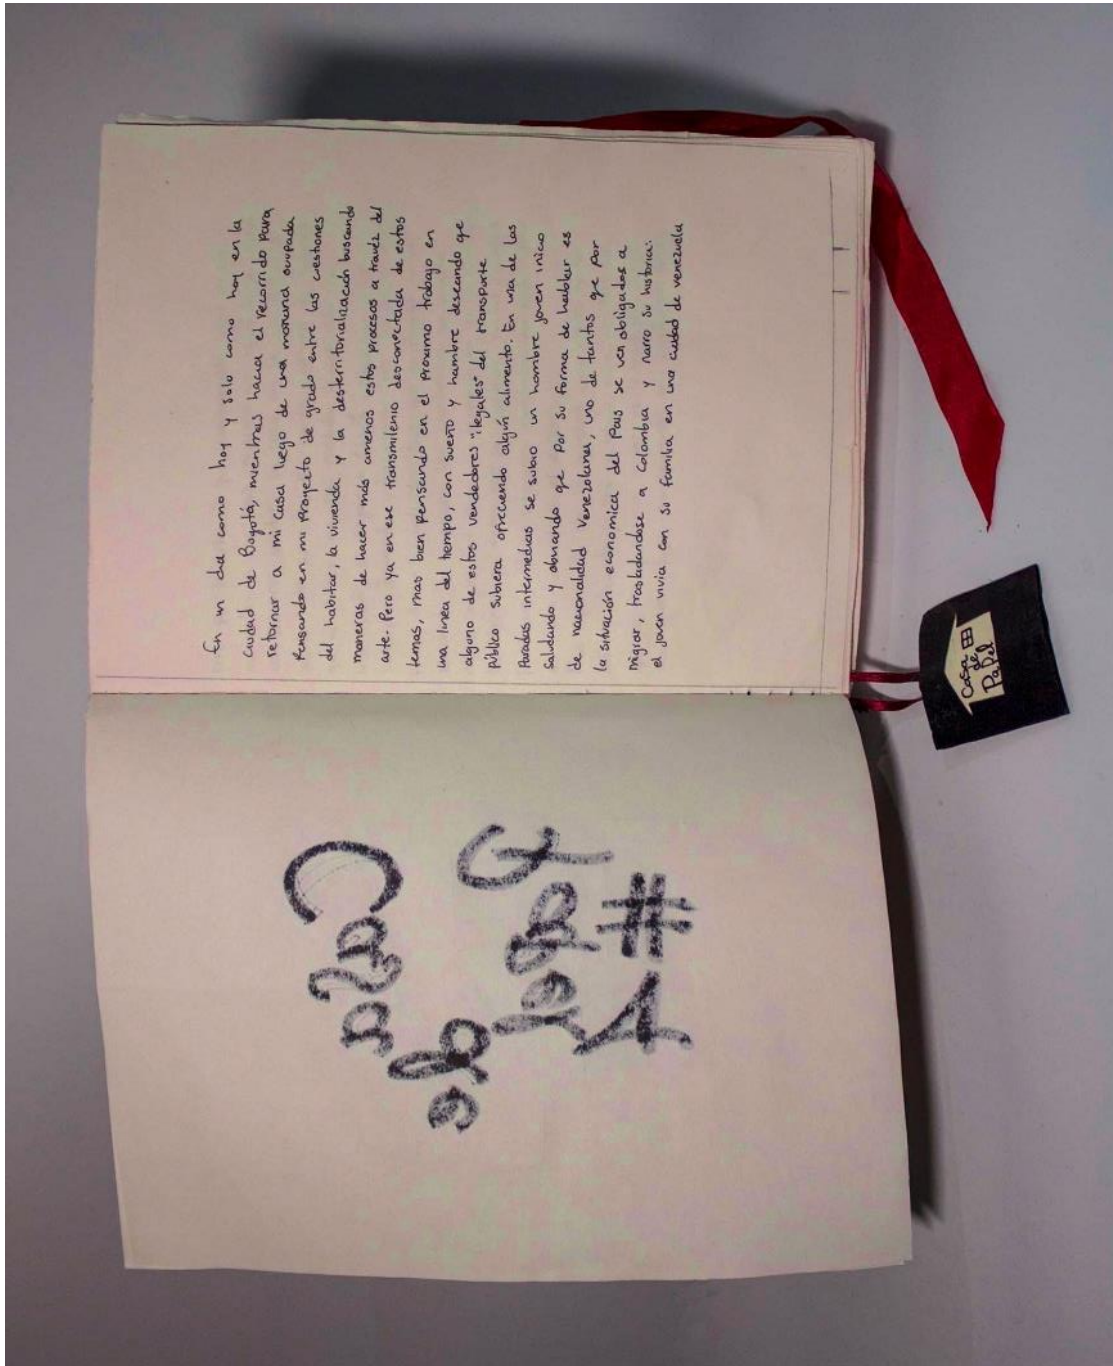 En un día como hoy y solo como hoy en la
ciudad de Bogotá, mientras hacia el recorrido para
retornar a mi casa luego de una mañana ocupada
Pensando en mi Proyecto de grado entre las cuestiones
del habitar, la vivienda y la desterritorialización buscando
maneras de hacer más amenos estos procesos a travéz del
arte. Pero ya en ese transmilenio desconectada de estos
temas, mas bien pensando en el proximo trabajo en
una linea del tiempo, con sueño y hambre deseando qe
alguno de estos vendedores "ilegales" del transporte
Público subiera ofreciendo algún alimento. En una de las
Paradas intermedias se subio un hombre joven inicio
Saludando y obviando qe Por su forma de hablar es
de nacionalidad Venezolana, uno de tantos qe por
la situación economica del País se ven obligados a
migrar, trasladandose a Colombia y narro su historia:
el joven vivia con su familia en una ciudad de venezuela
Casa
de
Papel